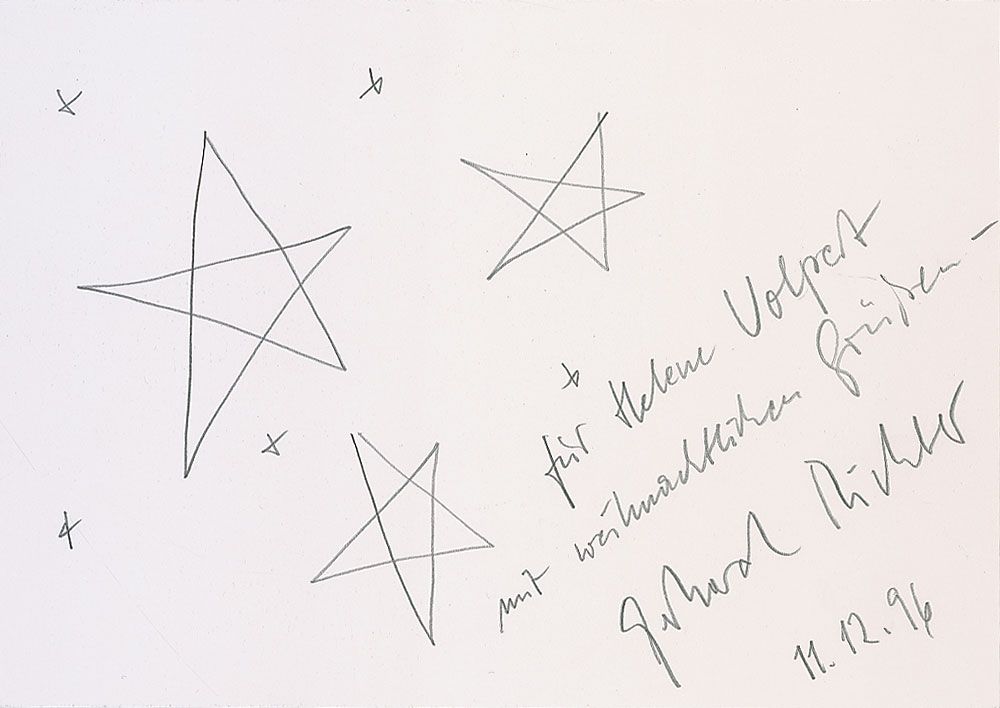 für Helene Volpert
mit weihnachtlichen Grüßen –
Gerhard Richter
11.12.96